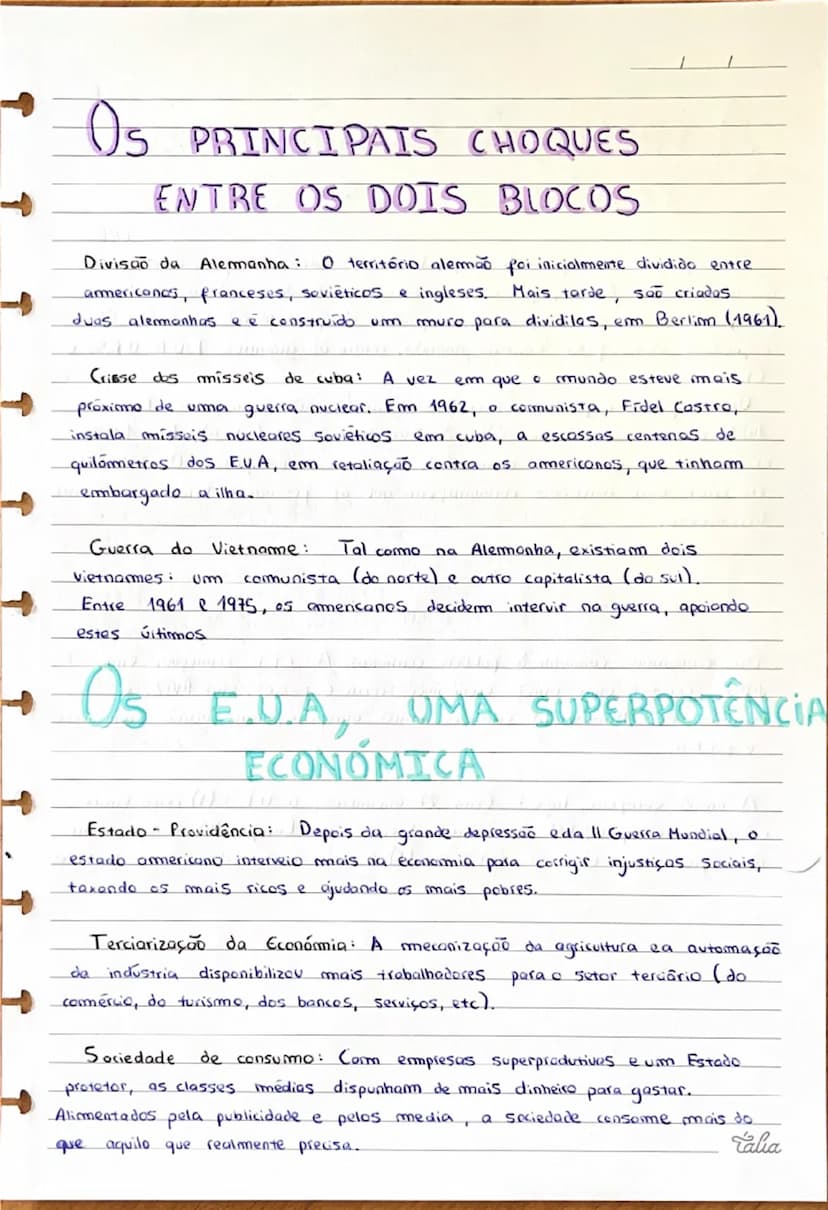 Os PRINCIPAIS CHOQUES
ENTRE OS DOIS BLOCOS
Divisão da Alemanha: O território alemão foi inicialmente dividido entre
americanos, franceses, soviéticos e ingleses. Mais tarde, são criadas
duas alemanhas e é construído um muro para dividilas, em Berlim (1961).
Crisse dos mísseis de cuba: A vez em que o mundo esteve mais
próximo de uma guerra nuclear. Em 1962, o comunista, Fidel Castro,
instala mísseis nucleares soviéticos em cuba, a escassas centenas de
quilómetros dos E.U.A, em retaliação contra os americanos, que tinham
embargado a ilha.
Guerra do Vietname: Tal como na Alemanha, existiam dois
vietnames: um comunista (do norte) e outro capitalista (do sul).
Entre 1961 e 1975, os americanos decidem intervir na guerra, apoiando
estes últimos
Os E.U.A, UMA SUPERPOTÊNCIA
ECONÓMICA
Estado-Providência: Depois da grande depressão e da II Guerra Mundial, o
estado americano interveio mais na economia para corrigir injustiças sociais,
taxando os mais ricos e ajudando os mais pobres.
Terciarização da Económia: A mecanização da agricultura e a automação
da indústria disponibilizou mais trabalhadores para o setor terciário (do
comércio, do turismo, dos bancos, serviços, etc).
Sociedade de consumo: Com empresas superprodutivas e um Estado
protetor, as classes médias dispunham de mais dinheiro para gastar.
Alimentados pela publicidade e pelos media, a sociedade consome mais do
que aquilo que realmente precisa.
Tália